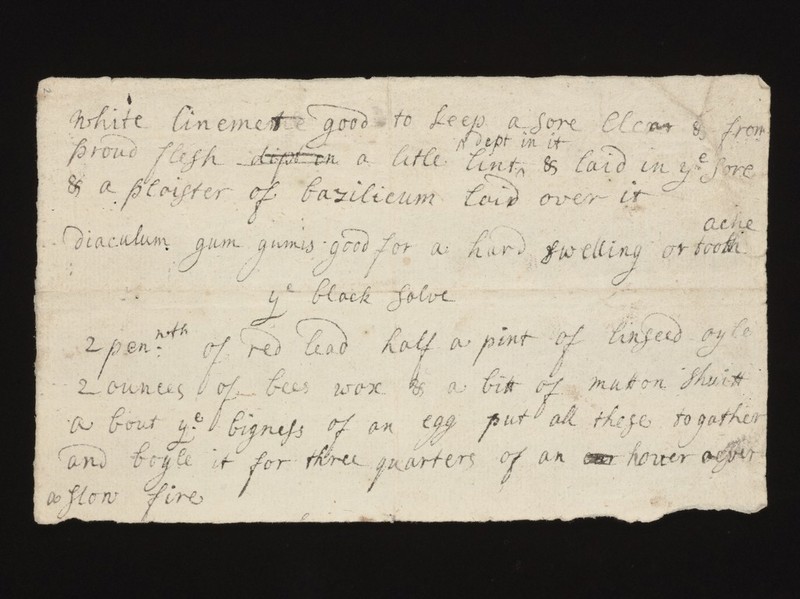 white linemente good to keep a sore clear & from
proud flesh dipt in a litle lint ^ dept in it & laid in yᵉ sore
& a plaister of bazilicum laid over it
diaculum gum gumis good for a hard swelling or tooth ache
yᵉ black salve
2 pen.nwth of red lead half a pint of linseed oyle
2 ounces of bees wax & a bitt of mutton shuitt
a bout yᵉ bigness of an egg put all these togather
and boyle it for three quarters of an houer
a slow fire